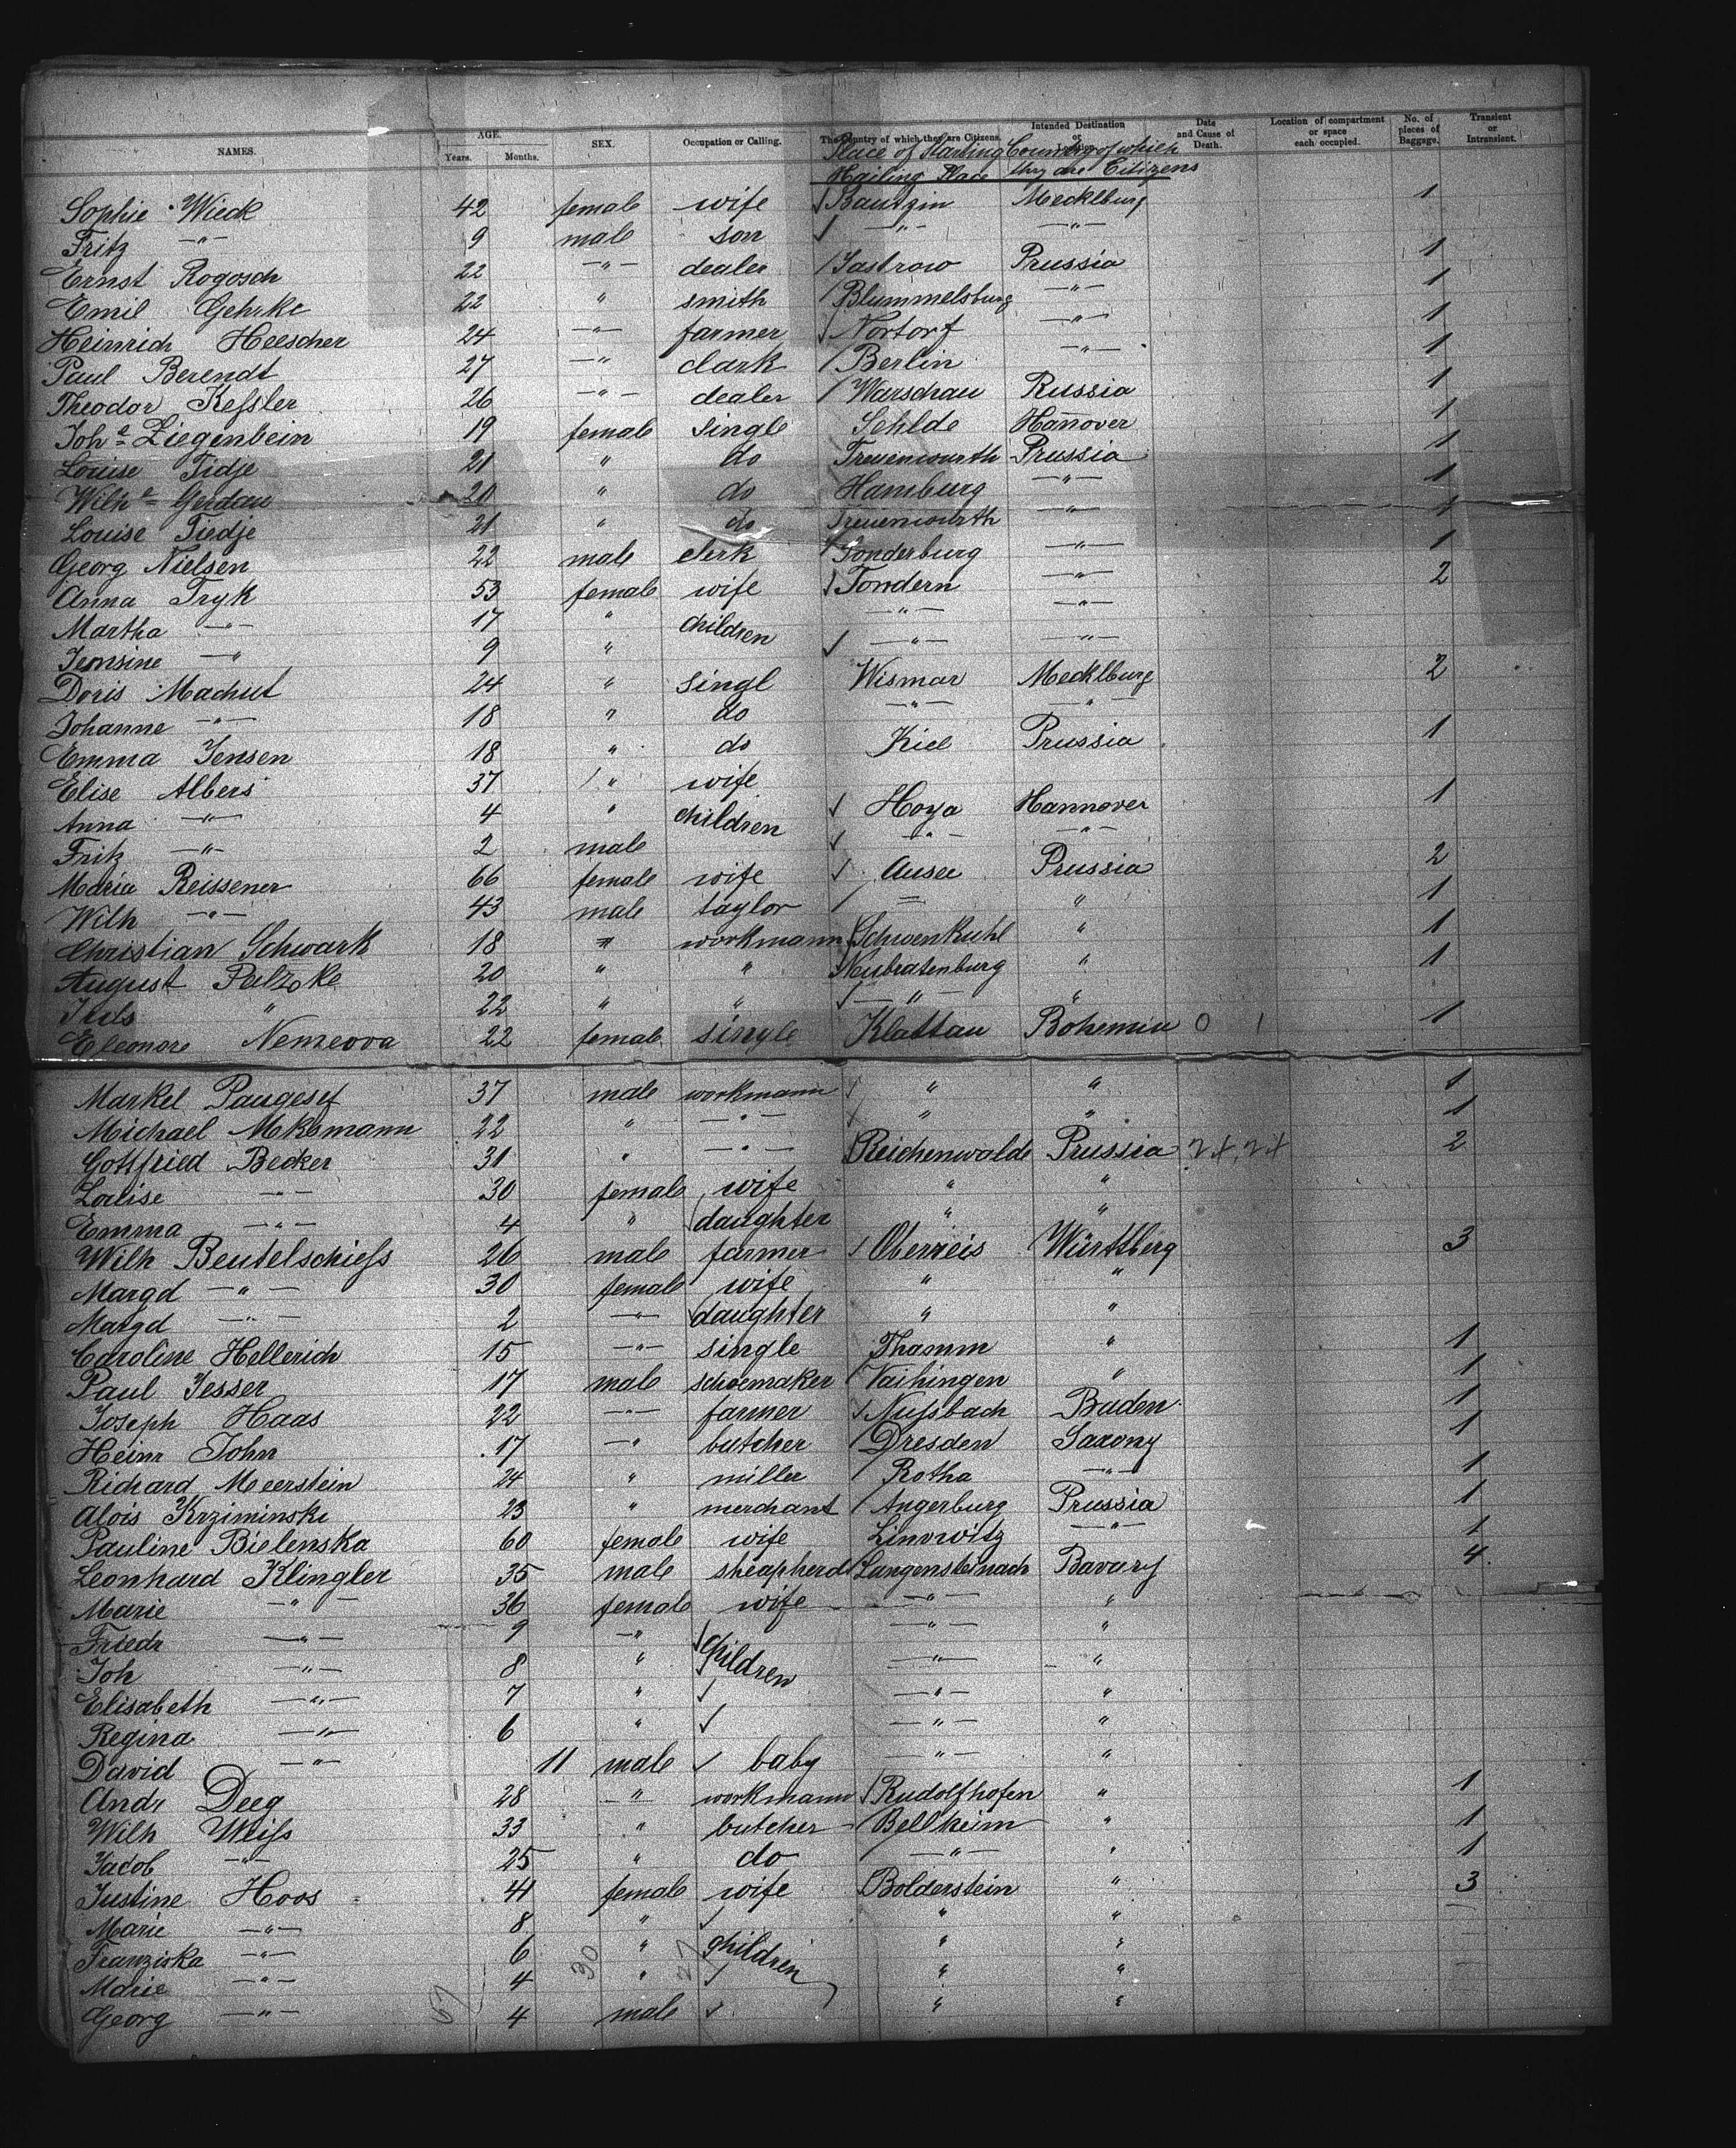 NAMES. AGE. Years. Months. SEX. Occupation or Calling. The Country of which they are Citizens. Intended Destination or Location. Date and Cause of Death. Location of compartment or space each occupied. No. of pieces of Baggage. Transient or Intransient.
Place of Starting Country of which
Hailing Place they are Citizens
Sophie Wieck 42 female wife Bautzin Mecklburg 1
Fritz —"— 9 male son —"— —"—
Ernst Rogosch 22 —"— dealer Jastrow Prussia 1
Emil Gehrke 22 " smith Blummelsburg —"— 1
Heinrich Heescher 24 —"— farmer Nortorf —"— 1
Paul Berendt 27 —"— clark Berlin —"— 1
Theodor Keſsler 26 —"— dealer Warschau Russia 1
Joh e Ziegenbein 19 female single Sehlde Hannover 1
Louise Tidje 21 " do Treuenwurth Prussia 1
Wilh e Gerdau 20 " do Hamburg —"— 1
Louise Tiedje 21 " do Treuenwurth —"— 1
Georg Nielsen 22 male clerk Sonderburg —"— 1
Anna Tryk 53 female wife Tondern —"— 2
Martha —"— 17 " children —"— —"—
Jensine —"— 9 " —"— —"—
Doris Machut 24 " singl Wismar Mecklburg 2
Johanne —"— 18 " do —"— —"—
Emma Jensen 18 " do Kiel Prussia 1
Elise Albers 37 " wife
Anna —"— 4 " children Hoya Hannover 1
Fritz —"— 2 male —"— —"—
Maria Reissener 66 female wife Ausee Prussia 2
Wilh —"— 43 male taylor — " 1
Christian Schwark 18 " workmann Schwenkuhl " 1
August Palzoke 20 " " Neubratenburg " 1
Juls " 22 " " —"— "
Eleonore Nemeova 22 female single Klattau Bohemia 0 1 1
Markel Paugesef 37 male workmann " " 1
Michael Meksmann 22 " —"— " " 1
Gottfried Becker 31 " —"— Reichenwalde Prussia 24,24 2
Louise —"— 30 female wife " "
Emma —"— 4 " daughter " "
Wilh Beutelschieſs 26 male farmer Oberreis Württberg 3
Margd —"— 30 female wife " "
Margd —"— 2 —"— daughter " "
Caroline Hellerich 15 —"— single Thamm " 1
Paul Jesser 17 male schoemaker Vaihingen " 1
Joseph Haas 22 —"— farmer Nuſsbach Baden 1
Heinr John 17 —"— butcher Dresden Saxony 1
Richard Meerstein 24 " miller Rotha —"— 1
Alois Krziminski 23 " merchant Angerburg Prussia 1
Pauline Bielenska 60 female wife Linowitz —"— 1
Leonhard Klingler 35 male sheapherd Langensteinach Bavary 4
Marie —"— 36 female wife —"— "
Friedr —"— 9 —"— children —"— "
Joh —"— 8 " —"— "
Elisabeth —"— 7 " —"— "
Regina —"— 6 " —"— "
David —"— 11 male baby —"— "
Andr Deeg 28 —"— workmann Rudolfhofen " 1
Wilh Weiſs 33 " butcher Bellheim " 1
Jacob —"— 25 " do —"— " 1
Justine Hoos 41 female wife Bolderstein " 3
Marie —"— 8 " " "
Franziska —"— 6 " children " "
Marie —"— 4 " " "
Georg —"— 4 male " "